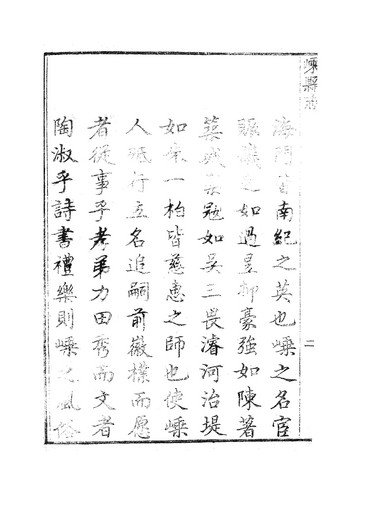 嵊縣志
海門皆南紀之英也嵊之名宦
賑饑之如過昱抑豪強如陳著
築城如吳三畏濬河治堤
如一柏皆慈惠之師也使嵊
人砥行立名追嗣前徽樸而愿
者從事乎孝弟力田秀而文者
陶淑乎詩書禮樂則嵊之風俗
二